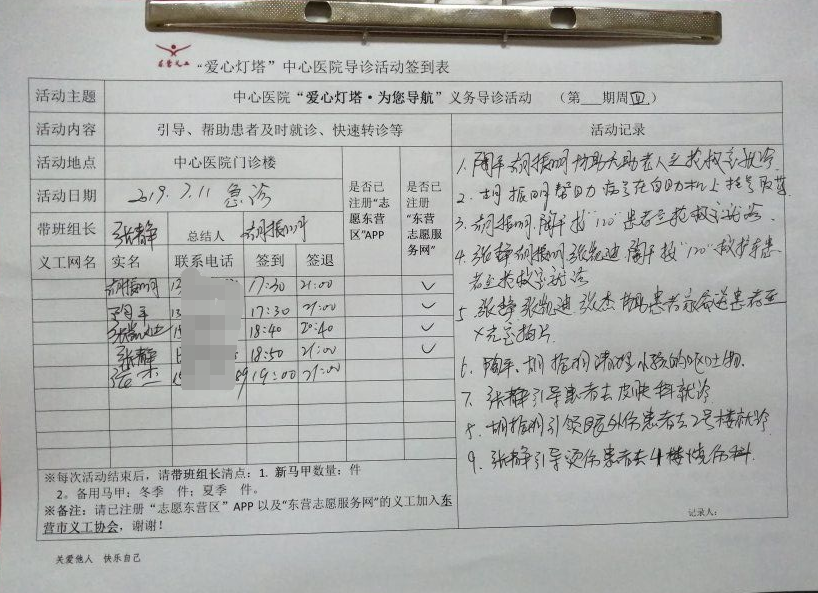 东营义工
“爱心灯塔”中心医院导诊活动签到表
活动主题 中心医院“爱心灯塔·为您导航”义务导诊活动 （第 期周四）
活动内容 引导、帮助患者及时就诊、快速转诊等 活动记录
活动地点 中心医院门诊楼
活动日期 2019.7.11 急诊
是否已注册“志愿东营区”APP
是否已注册“东营志愿服务网”
带班组长 张静 总结人 胡振明
义工网名 实名 联系电话 签到 签退
胡振明 13 17:30 21:00 ✓
陶平 13 17:30 21:00 ✓
张凯迪 15 18:40 20:40 ✓
张静 18:50 21:00 ✓
张杰 15 89 19:00 21:00
1. 陶平 胡振明 协助 老人去抢救室就诊
2. 胡振明帮助 在自助机上挂号取药
3. 胡振明.陶平 接“120”患者至抢救室就诊.
4. 张静 胡振明 张凯迪 陶平 接“120”救护车患
者至抢救室就诊
5. 张静 张凯迪 张杰 协助患者家属送患者至
X光室拍片
6. 陶平、胡振明清理小孩的呕吐物.
7. 张静引导患者去皮肤科就诊
8. 胡振明引领眼外伤患者去2号楼就诊
9. 张静引导烫伤患者去4楼烧伤科.
※每次活动结束后，请带班组长清点：1. 新马甲数量：件
2。备用马甲：冬季 件；夏季 件。
※备注：请已注册“志愿东营区”APP以及“东营志愿服务网”的义工加入东
营市义工协会，谢谢！
记录人：
关爱他人 快乐自己